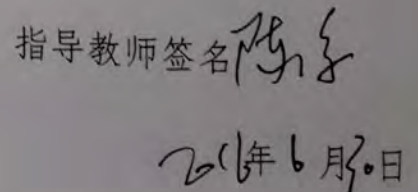 指导教师签名陈
2016年6月30日